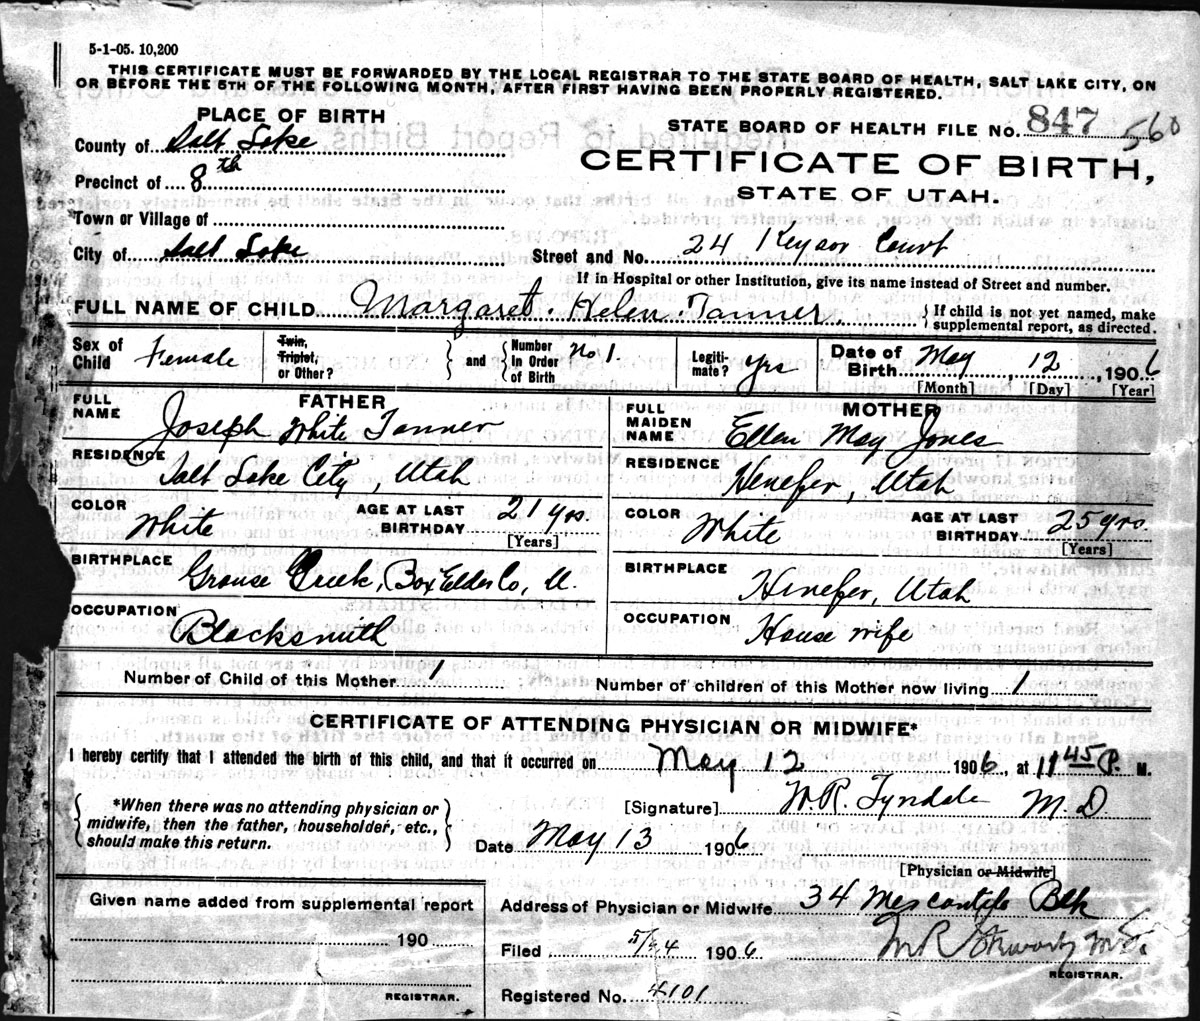 5-1-05. 10,200
THIS CERTIFICATE MUST BE FORWARDED BY THE LOCAL REGISTRAR TO THE STATE BOARD OF HEALTH, SALT LAKE CITY, ON
OR BEFORE THE 5TH OF THE FOLLOWING MONTH, AFTER FIRST HAVING BEEN PROPERLY REGISTERED.
PLACE OF BIRTH
STATE BOARD OF HEALTH FILE NO. 847 560
County of Salt Lake
CERTIFICATE OF BIRTH,
Precinct of 8th
STATE OF UTAH.
Town or Village of
City of Salt Lake
Street and No. 24 Keysor Court
If in Hospital or other Institution, give its name instead of Street and number.
FULL NAME OF CHILD Margaret Helen Tanner
{ If child is not yet named, make
supplemental report, as directed.
Sex of Child Female
Twin, Triplet, or Other? } and { Number in Order of Birth no 1.
Legiti-mate? yes
Date of Birth May 12, 1906
[Month] [Day] [Year]
FATHER
FULL NAME Joseph White Tanner
RESIDENCE Salt Lake City, Utah
COLOR White
AGE AT LAST BIRTHDAY 21 yrs.
[Years]
BIRTHPLACE Grouse Creek, Box Elder Co, U.
OCCUPATION Blacksmith
MOTHER
FULL MAIDEN NAME Ellen May Jones
RESIDENCE Henefer, Utah
COLOR White
AGE AT LAST BIRTHDAY 25 yrs.
[Years]
BIRTHPLACE Henefer, Utah
OCCUPATION House wife
Number of Child of this Mother 1
Number of children of this Mother now living 1
CERTIFICATE OF ATTENDING PHYSICIAN OR MIDWIFE*
I hereby certify that I attended the birth of this child, and that it occurred on May 12 1906, at 11 45 P. M.
{ *When there was no attending physician or
midwife, then the father, householder, etc.,
should make this return. }
[Signature] W.R. Tyndale M.D.
Date May 13 1906
[Physician or Midwife]
Given name added from supplemental report
190
REGISTRAR.
Address of Physician or Midwife 34 Mercantile Blk
Filed 5/24 1906
REGISTRAR.
Registered No. 4101